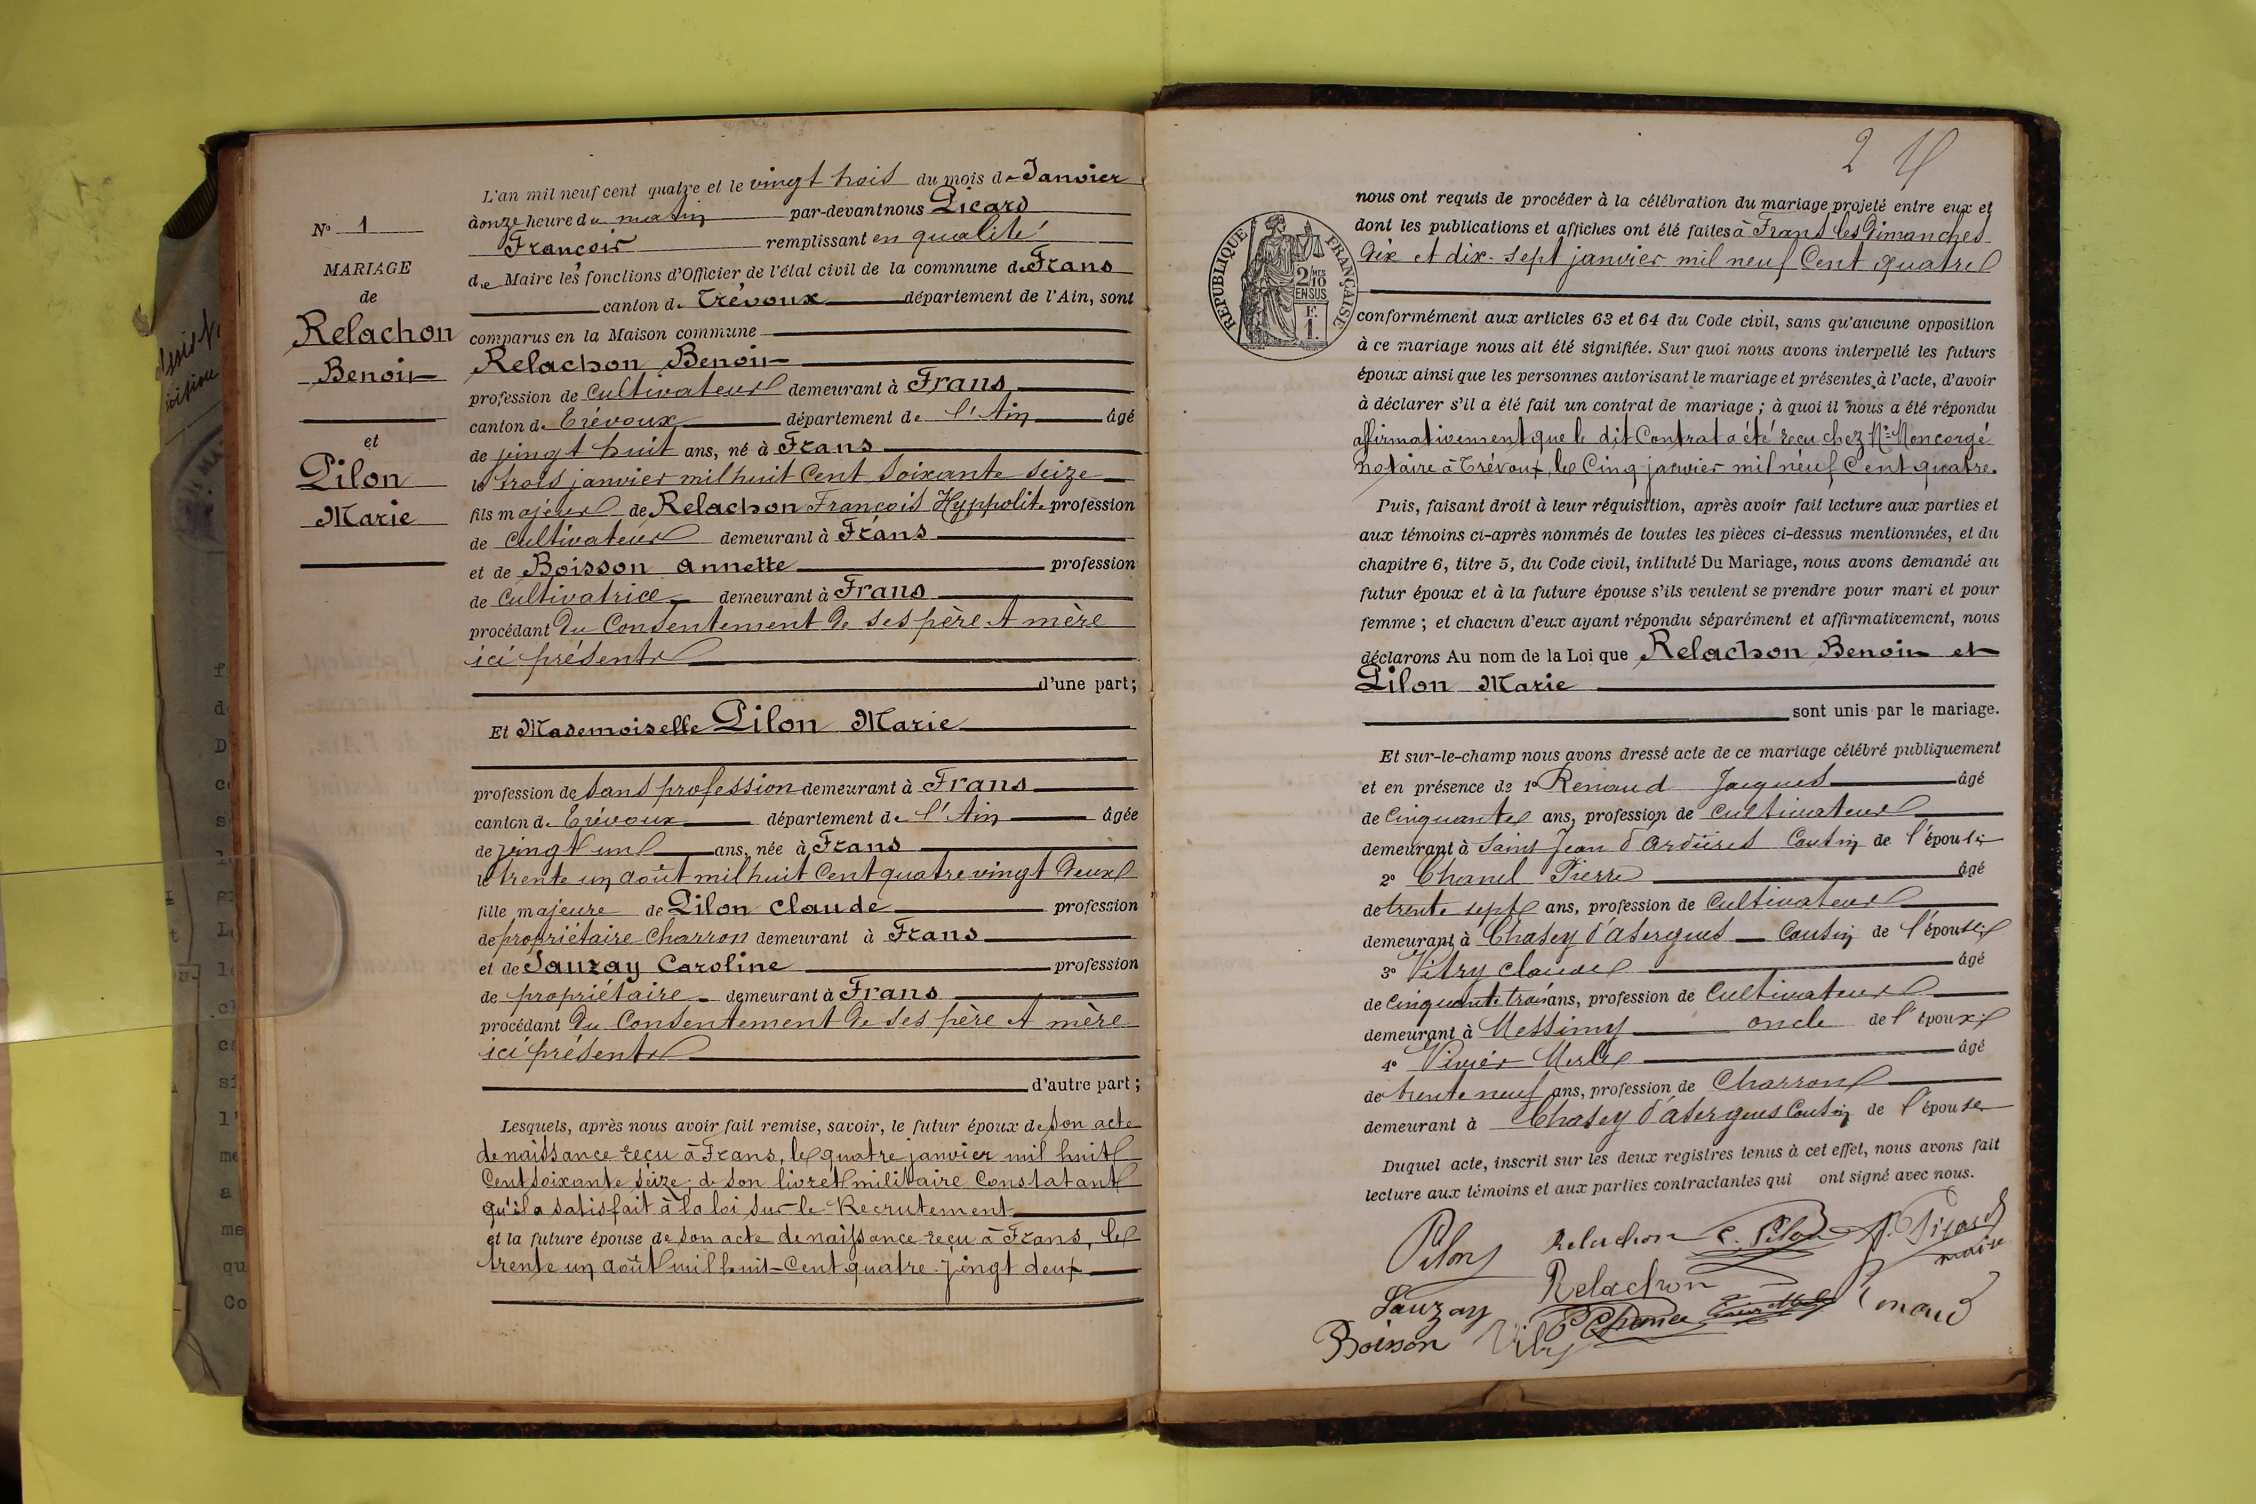 L'an mil neuf cent quatre et le vingt trois du mois de Janvier
à onze heure du matin par-devant nous Picard
François remplissant en qualité
de Maire les fonctions d'Officier de l'état civil de la commune de Frans
canton de Trévoux département de l'Ain, sont
comparus en la Maison commune
Relachon Benoit
profession de Cultivateur demeurant à Frans
canton de Trévoux département de l'Ain âgé
de vingt huit ans, né à Frans
le trois janvier mil huit Cent Soixante Seize
fils majeur de Relachon François Hyppolite profession
de Cultivateur demeurant à Frans
et de Boisson Annette profession
de Cultivatrice demeurant à Frans
procédant du Consentement de ses père et mère
ici présents
d'une part;
Et Mademoiselle Pilon Marie
profession de sans profession demeurant à Frans
canton de Trévoux département de l'Ain âgée
de vingt un ans, née à Frans
le trente un août mil huit Cent quatre vingt deux
fille majeure de Pilon Claude profession
de propriétaire Charron demeurant à Frans
et de Sauzay Caroline profession
de propriétaire demeurant à Frans
procédant du Consentement de ses père et mère
ici présents
d'autre part;
Lesquels, après nous avoir fait remise, savoir, le futur époux de son acte
de naissance reçu à Frans, le quatre janvier mil huit
Cent soixante seize, de son livret militaire Constatant
qu'il a satisfait à la loi sur le Recrutement
et la future épouse de son acte de naissance reçu à Frans, le
trente un août mil huit Cent quatre vingt deux
No 1
MARIAGE
de
Relachon
Benoit
et
Pilon
Marie
2
RÉPUBLIQUE FRANÇAISE
2/10 MES
EN SUS
F.
1.
nous ont requis de procéder à la célébration du mariage projeté entre eux et
dont les publications et affiches ont été faites à Frans les Dimanches
dix et dix-sept janvier mil neuf Cent quatre
conformément aux articles 63 et 64 du Code civil, sans qu'aucune opposition
à ce mariage nous ait été signifiée. Sur quoi nous avons interpellé les futurs
époux ainsi que les personnes autorisant le mariage et présentes à l'acte, d'avoir
à déclarer s'il a été fait un contrat de mariage ; à quoi il nous a été répondu
affirmativement que le dit Contrat a été reçu chez Me Moncorgé
notaire à Trévoux, le Cinq janvier mil neuf Cent quatre.
Puis, faisant droit à leur réquisition, après avoir fait lecture aux parties et
aux témoins ci-après nommés de toutes les pièces ci-dessus mentionnées, et du
chapitre 6, titre 5, du Code civil, intitulé Du Mariage, nous avons demandé au
futur époux et à la future épouse s'ils veulent se prendre pour mari et pour
femme ; et chacun d'eux ayant répondu séparément et affirmativement, nous
déclarons Au nom de la Loi que Relachon Benoit et
Pilon Marie
sont unis par le mariage.
Et sur-le-champ nous avons dressé acte de ce mariage célébré publiquement
et en présence de 1° Renaud Jacques âgé
de Cinquante ans, profession de Cultivateur
demeurant à Saint Jean d'Ardières Cousin de l'épouse
2° Chanel Pierre âgé
de trente sept ans, profession de Cultivateur
demeurant à Chasey d'Asergues Cousin de l'épouse
3° Vitry Claude âgé
de Cinquante trois ans, profession de Cultivateur
demeurant à Messimy oncle de l'époux
4° Vivier Merle âgé
de trente neuf ans, profession de Charron
demeurant à Chasey d'Asergues Cousin de l'épouse
Duquel acte, inscrit sur les deux registres tenus à cet effet, nous avons fait
lecture aux témoins et aux parties contractantes qui ont signé avec nous.
Pilon Relachon C. Pilon F. Picard
maire
Sauzay Relachon Renaud
Boisson Vitry